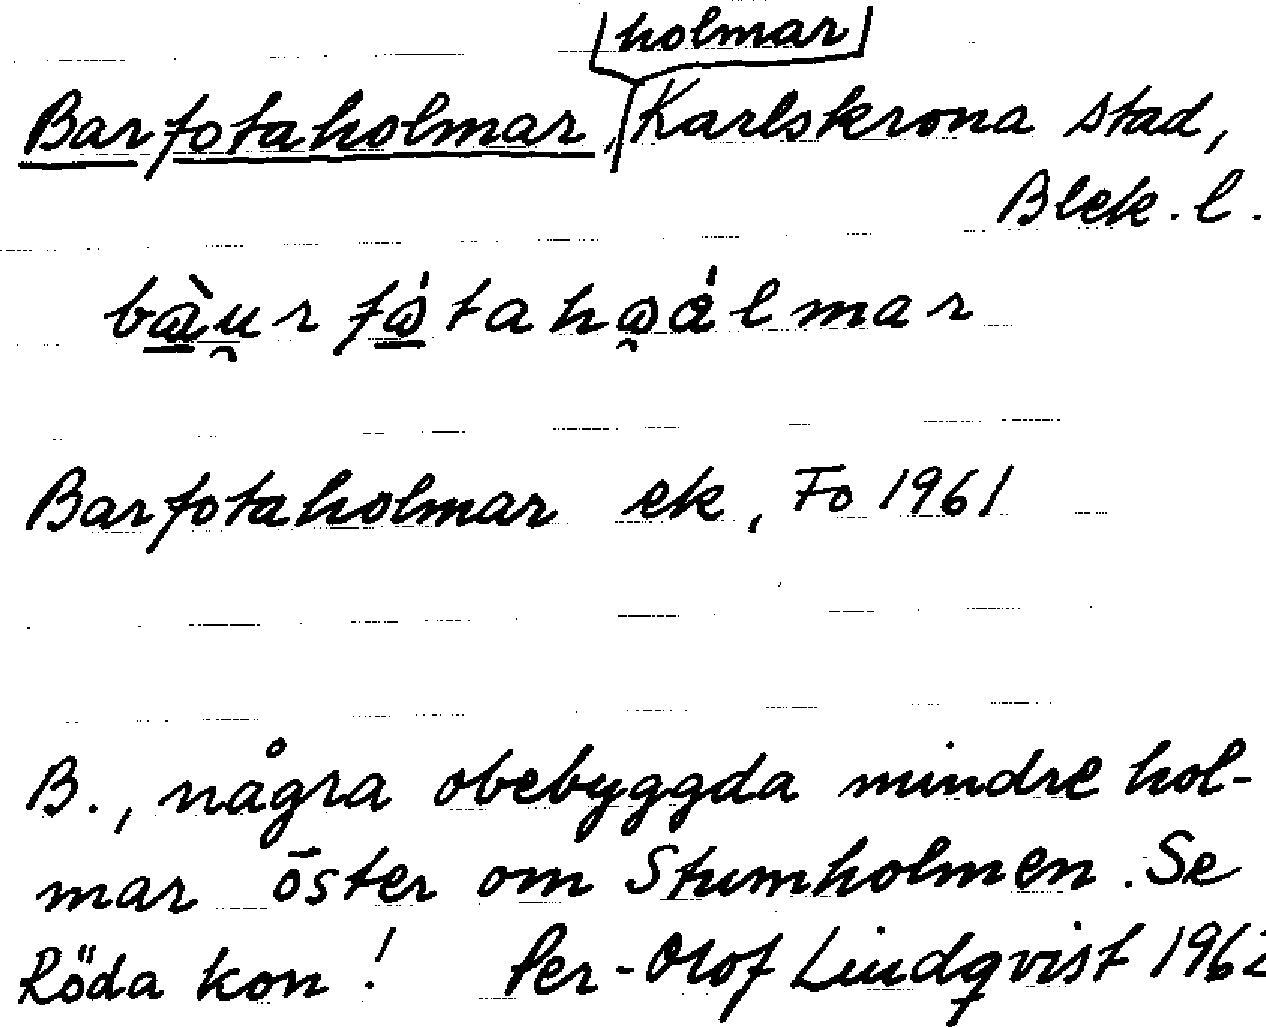 holmar
Barfotaholmar, Karlskrona stad,
Blek. l.
Barfotaholmar ek, Fo 1961
B., några obebyggda mindre hol-
mar öster om Stumholmen. Se
Röda kon! Per-Olof Lindqvist 1962